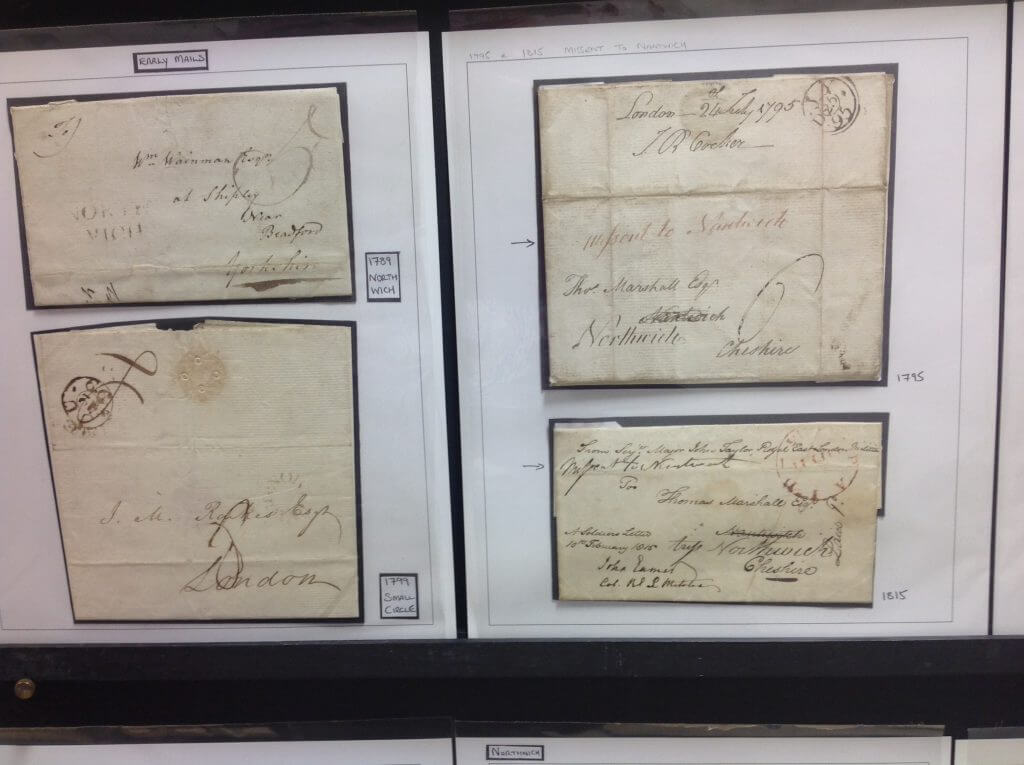 EARLY MAILS
To
Wm Wainman Esqr
at Shipley
Near
Bradford
Yorkshire
NORTH
WICH
1789
NORTH
WICH
J. M. Esqr
London
1799
SMALL
CIRCLE
1795 & 1815 MISSENT TO NANTWICH
London 24th July 1795
Missent to Nantwich
Thos. Marshall Esqr.
Nantwich
Northwich
Cheshire
1795
From Serjt. Major John Taylor, Royal East London Militia
Missent to Nantwich
To
Thomas Marshall Esqr.
Nantwich
A Soldiers Letter
Northwich
Cheshire
John Eamer
Col.
1815
NORTHWICH